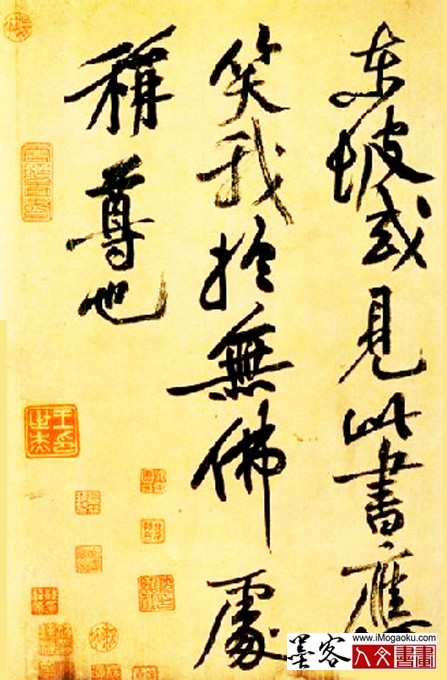 东坡或見此書應
笑我於無佛處
稱尊也
墨客
www.iMogaoku.com
人文書畫